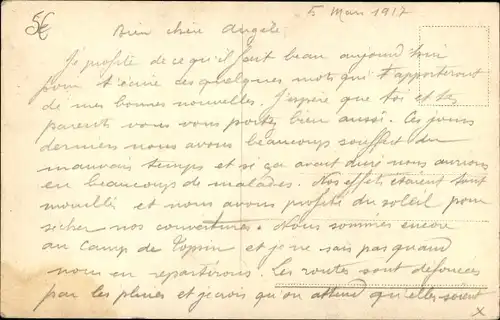 5 Mars 1917
Bien chère Angèle,
Je profite de ce qu'il fait beau aujourd'hui
pour t'écrire ces quelques mots qui t'apporteront
de mes bonnes nouvelles. J'espère que toi et tes
parents vous vous portez bien aussi. Ces jours
derniers nous avons beaucoup souffert du
mauvais temps et si ça avait duré nous aurions
eu beaucoup de malades. Nos effets étaient tout
mouillés et nous avons profité du soleil pour
sécher nos couvertures. Nous sommes encore
au Camp de et je ne sais pas quand
nous en repartirons. Les routes sont défoncées
par les pluies et je crois qu'on attend qu'elles soient
x